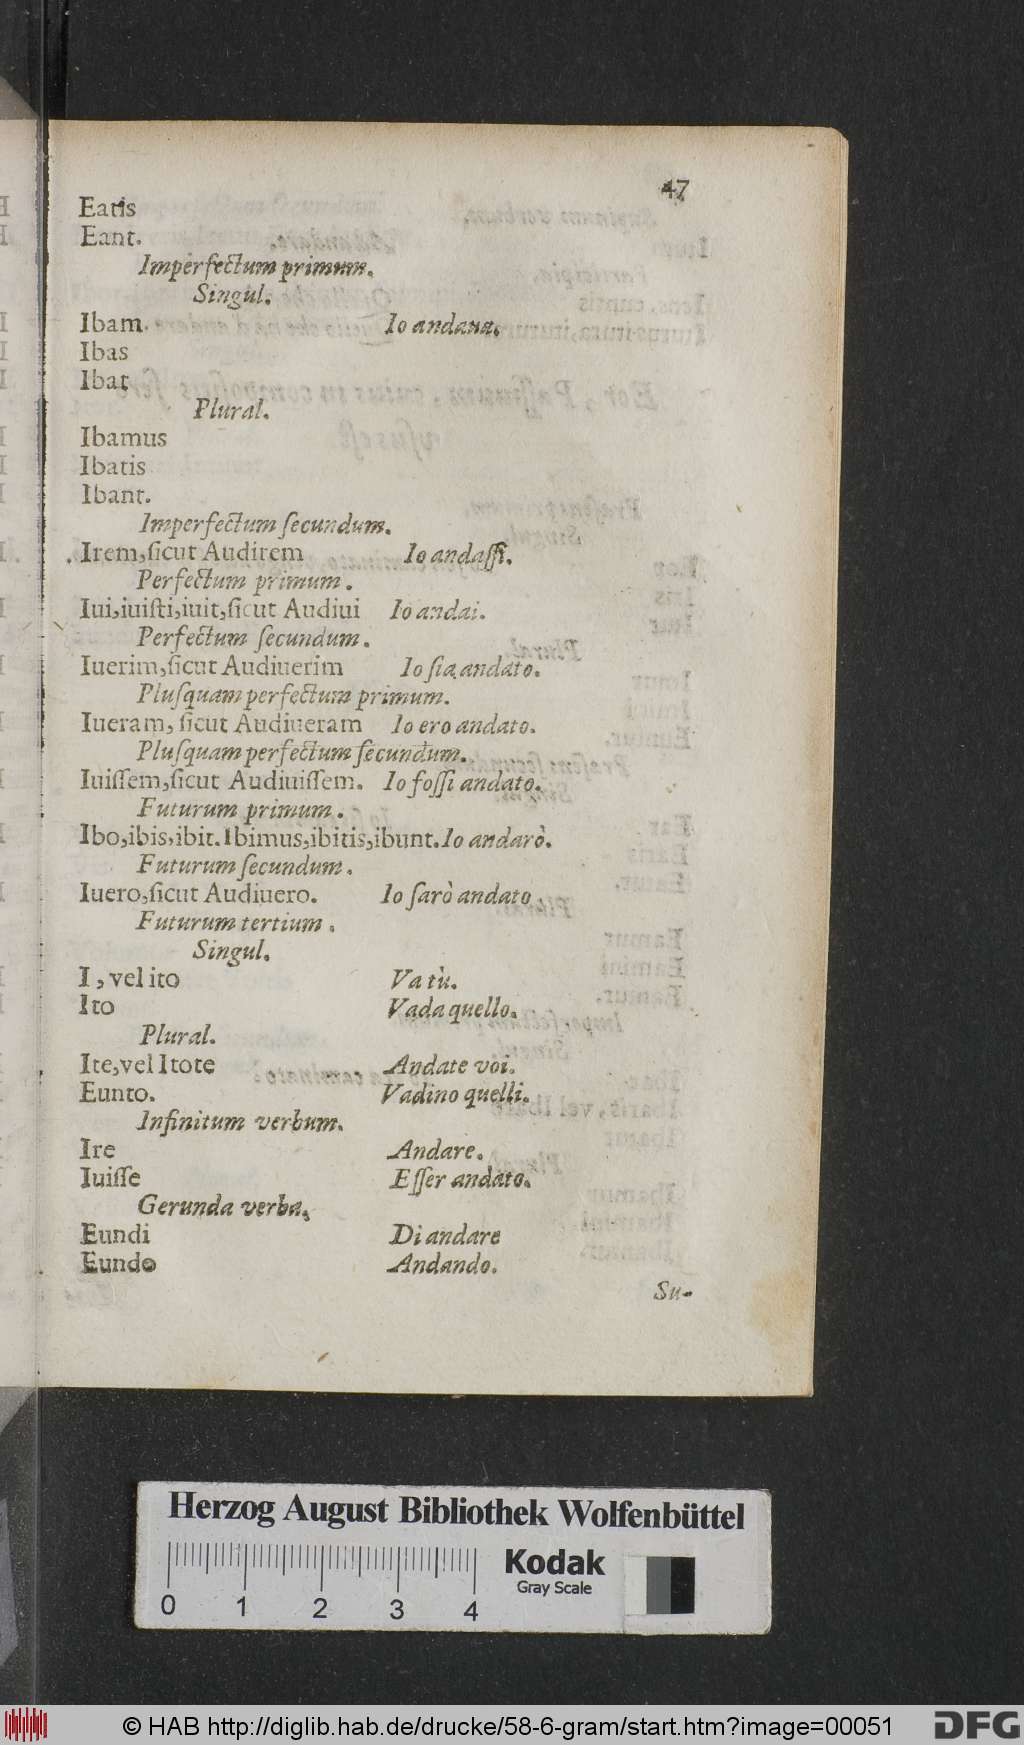 47
Eatis
Eant.
Imperfectum primum.
Singul.
Ibam. Io andaua.
Ibas
Ibat
Plural.
Ibamus
Ibatis
Ibant.
Imperfectum ſecundum.
Irem,ſicut Audirem Io andaſſi.
Perfectum primum.
Iui,iuiſti,iuit,ſicut Audiui Io andai.
Perfectum ſecundum.
Iuerim,ſicut Audiuerim Io ſia andato.
Pluſquam perfectum primum.
Iueram, ſicut Audiueram Io ero andato.
Pluſquam perfectum ſecundum.
Iuiſſem,ſicut Audiuiſſem. Io foſſi andato.
Futurum primum.
Ibo,ibis,ibit. Ibimus,ibitis,ibunt. Io andarò.
Futurum ſecundum.
Iuero,ſicut Audiuero. Io ſarò andato
Futurum tertium.
Singul.
I, vel ito Va tù.
Ito Vada quello.
Plural.
Ite,vel Itote Andate voi.
Eunto. Vadino quelli.
Infinitum verbum.
Ire Andare.
Iuiſſe Eſſer andato.
Gerunda verba.
Eundi Di andare
Eundo Andando.
Su-
Herzog August Bibliothek Wolfenbüttel
Kodak
Gray Scale
0 1 2 3 4
© HAB http://diglib.hab.de/drucke/58-6-gram/start.htm?image=00051
DFG